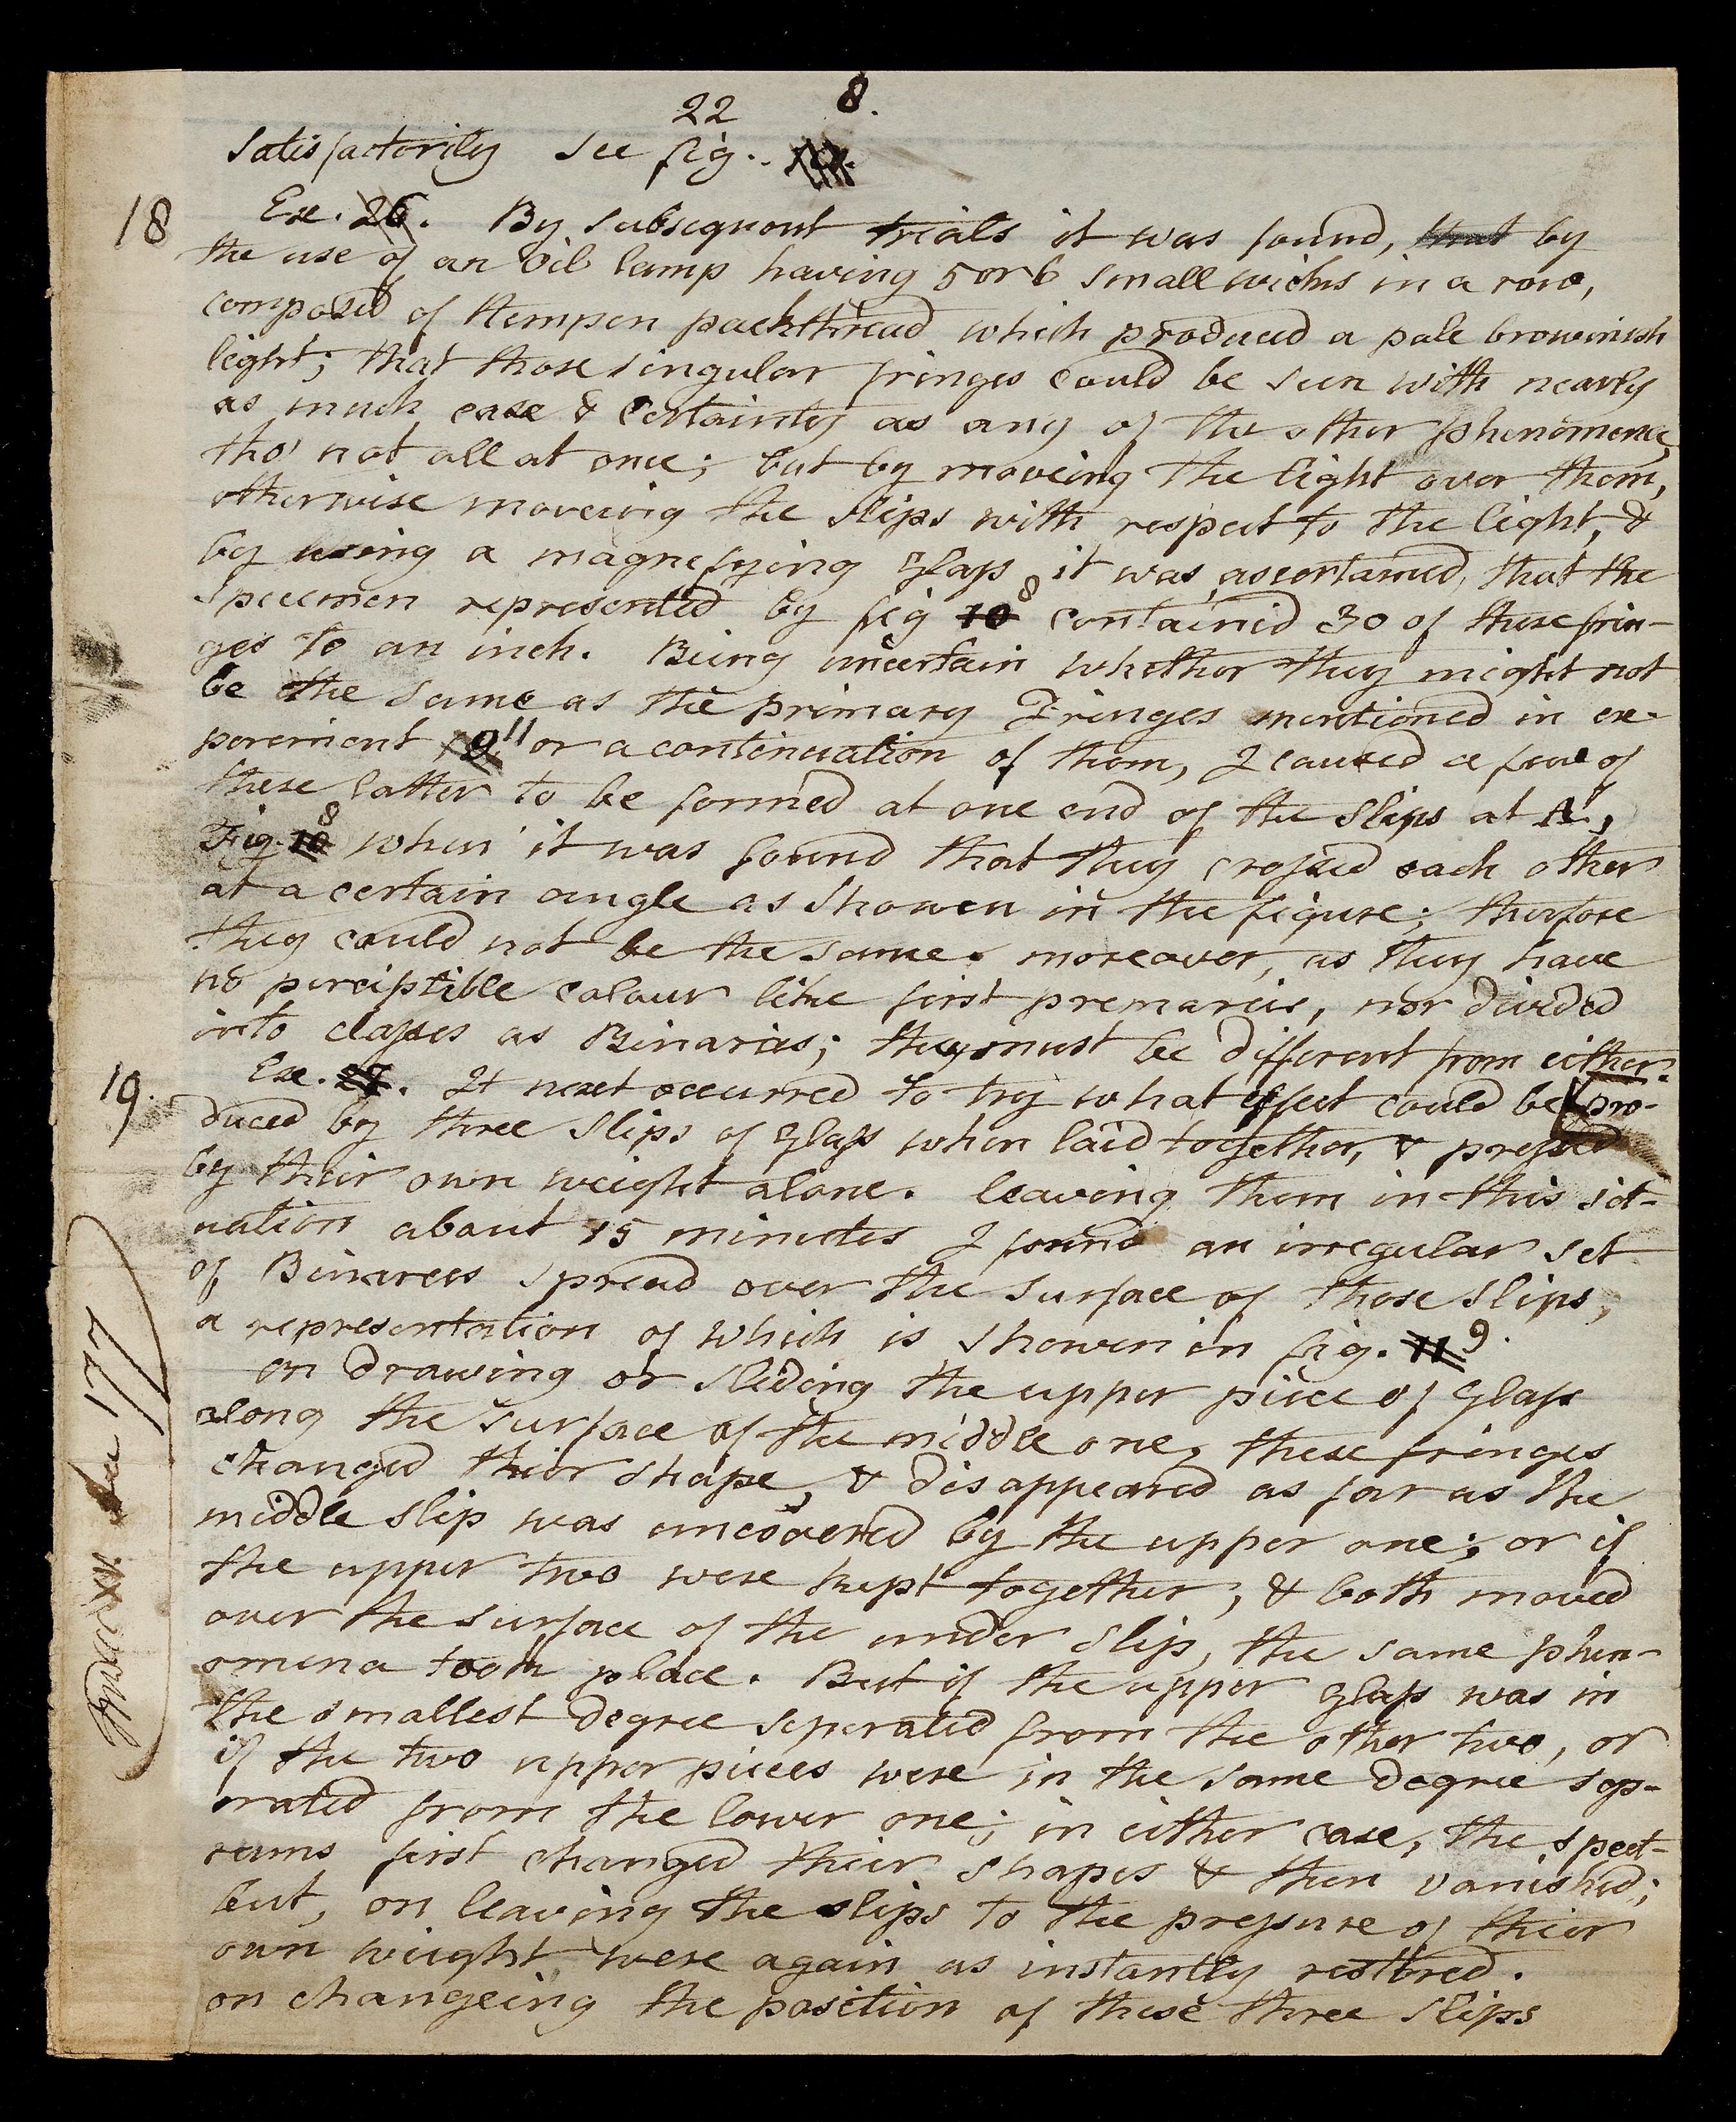 22 8.
Satisfactorily See fig..
18 Ex. 26. By Subsequent trials it was found, that by
the use of an Oil lamp having 5 or 6 small wicks in a row,
composed of Hempen packthread which produced a pale browinish
light; that those singular fringes could be seen with nearly
as much ease & certainty as any of the other phenomena,
tho' not all at once; but by moveing the light over them,
otherwise moveing the slips with respect to the light, &
by using a magnefying Glass it was ascertained, that the
Specemen represented by fig 10 8 contained 30 of these frin-
ges to an inch. Being uncertain whether they might not
be the same as the primary Fringes mentioned in ex-
perement 9 11 or a continuation of them, I caused a few of
these latter to be formed at one end of the Slips at A,
Fig. 10 8 when it was found that they crossed each other
at a certain angle as Showen in the figure; therfore
they could not be the same. moreover, as they have
no perciptible colour like first premaries, nor divided
into classes as Binaries; they must be different from either.
19. Ex. 27. It next occurred to try what effect could be pro-
duced by three Slips of Glass when laid together, & pressed
by their own weight alone. leaving them in this sit-
uation about 15 minutes I found an irregular set
of Binarees spread over the surface of those slips,
a representation of which is showen in fig. 11 9.
on drawing or slideing the upper piece of Glass
along the surface of the middle one, these fringes
changed thier shape, & disappeared as far as the
middle slip was uncovered by the upper one; or if
the upper two were kept together, & both moved
over the surface of the under slip, the same phen-
omena took place. But if the upper Glass was in
the smallest degree seperated from the other two, or
if the two upper pieces were in the same degree sep-
erated from the lower one; in either case, the spect-
rums first changed their shapes & then vanished;
but, on leaveing the slips to the pressure of thier
own weight were again as instantly restored.
on changeing the position of these three slips
177